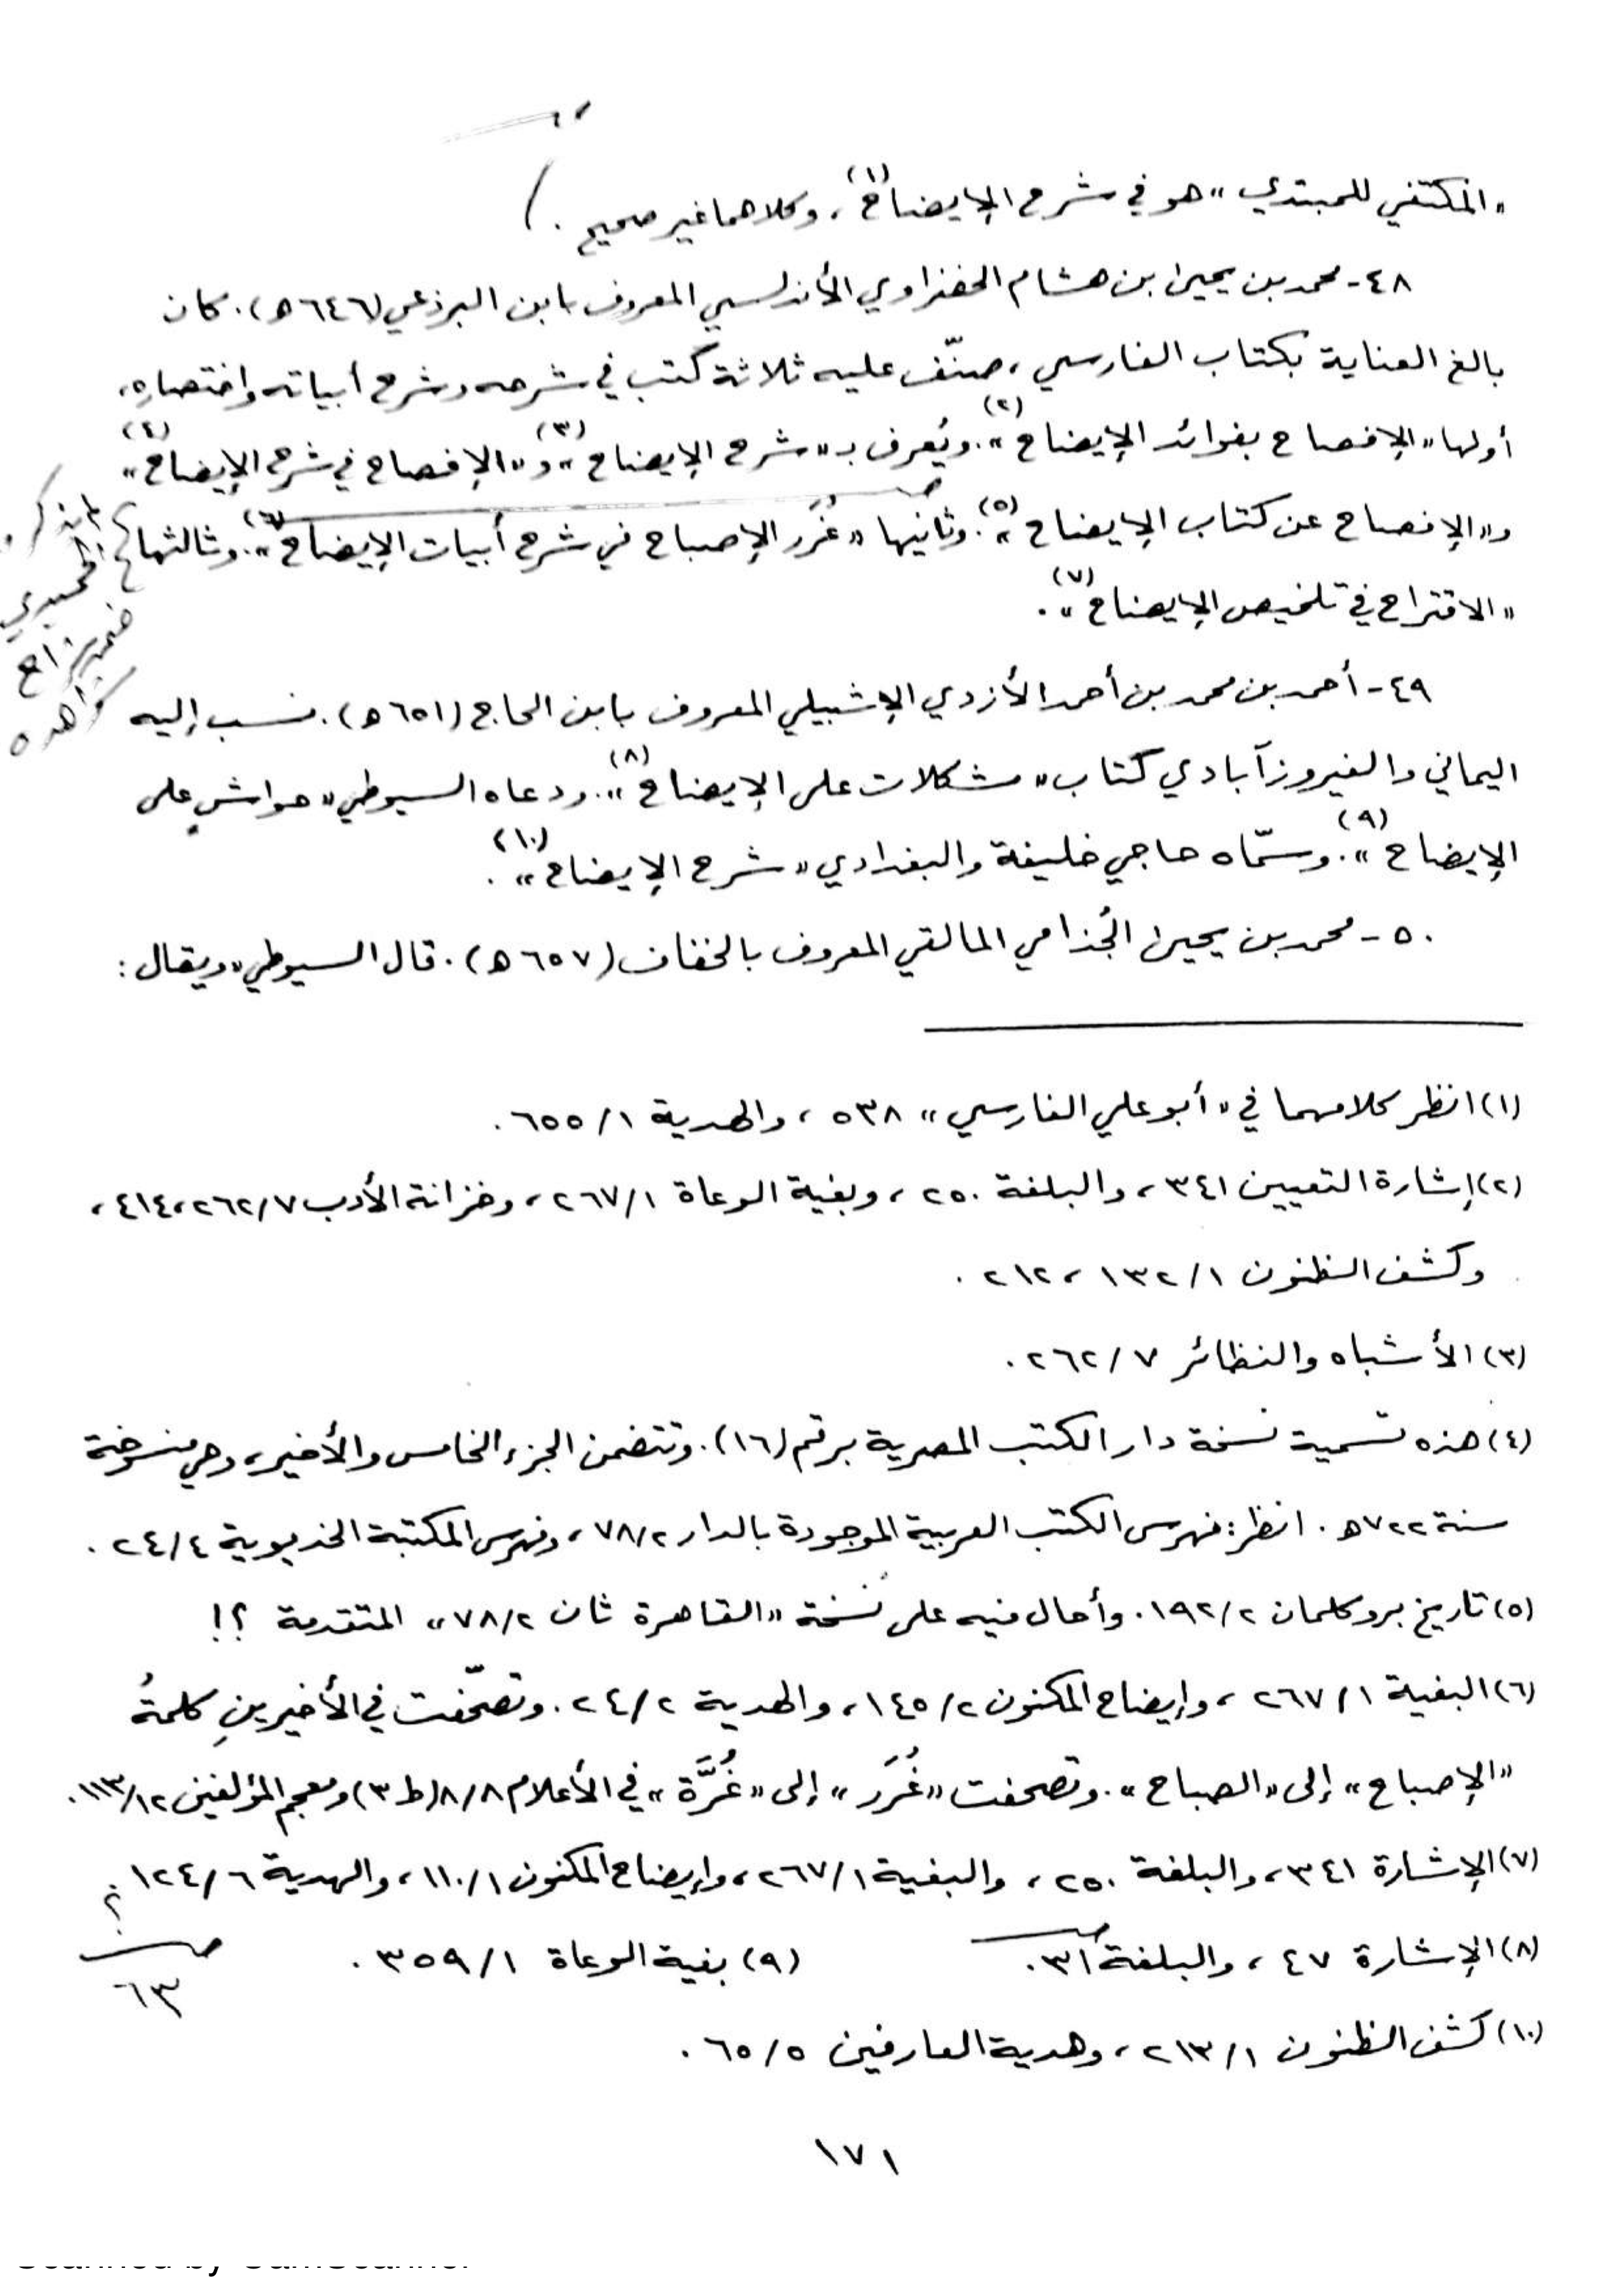 «المكتفي للمبتدي» هو في شرح الإيضاح(١)، وكلاهما غير صحيح.
٤٨- محمد بن يحيى بن هشام الخضراوي الأندلسي المعروف بابن البرذعي (٦٤٦ه). كان
بالغ العناية بكتاب الفارسي، صنّف عليه ثلاثة كتب في شرحه وشرح أبياته واختصاره،
أولها «الإفصاح بفوائد الإيضاح»(٢). ويُعرف بـ «شرح الإيضاح»(٣) و«الإفصاح في شرح الإيضاح»(٤)
و«الإفصاح عن كتاب الإيضاح»(٥). وثانيها «غُرَر الإصباح في شرح أبيات الإيضاح»(٦). وثالثها
«الاقتراح في تلخيص الإيضاح»(٧).
٤٩- أحمد بن محمد بن أحمد الأزدي الإشبيلي المعروف بابن الحاج (٦٥١ه). نسب إليه
اليماني والفيروزآبادي كتاب «مشكلات على الإيضاح»(٨). ودعاه السيوطي «حواشٍ على
الإيضاح»(٩). وسمّاه حاجي خليفة والبغدادي «شرح الإيضاح»(١٠).
٥٠- محمد بن يحيى الجُذامي المالقي المعروف بالخفاف (٦٥٧ه). قال السيوطي «ويقال:
(١) انظر كلامهما في «أبو علي الفارسي» ٥٣٨، والهدية ٦٥٥/١.
(٢) إشارة التعيين ٣٤١، والبلغة ٢٥٠، وبغية الوعاة ٢٦٧/١، وخزانة الأدب ٢٦٢/٧، ٤١٤،
وكشف الظنون ١٣٢/١، ٢١٢.
(٣) الأشباه والنظائر ٢٦٢/٧.
(٤) هذه تسمية نسخة دار الكتب المصرية برقم (١٦). وتتضمن الجزء الخامس والأخير، وهي منسوخة
سنة ٧٢٢ه. انظر: فهرس الكتب العربية الموجودة بالدار ٧٨/٢، وفهرس المكتبة الخديوية ٢٤/٤.
(٥) تاريخ بروكلمان ١٩٢/٢. وأحال فيه على نُسخة «القاهرة ثان ٧٨/٢» المتقدمة ؟!
(٦) البغية ٢٦٧/١، وإيضاح المكنون ١٤٥/٢، والهدية ٢٤/٢. وتصحّفت في الأخيرينِ كلمةُ
«الإصباح» إلى «الصباح». وتصحفت «غُرَر» إلى «غُرَّة» في الأعلام ٨/٨ (ط٣) ومعجم المؤلفين ١١٣/١٢.
(٧) الإشارة ٣٤١، والبلغة ٢٥٠، والبغية ٢٦٧/١، وإيضاح المكنون ١١٠/١، والهدية ١٢٤/٦
؟
(٨) الإشارة ٤٧، والبلغة ٣١.
(٩) بغية الوعاة ٣٥٩/١.
٦٣
(١٠) كشف الظنون ٢١٣/١، وهدية العارفين ٦٥/٥.
١٧١